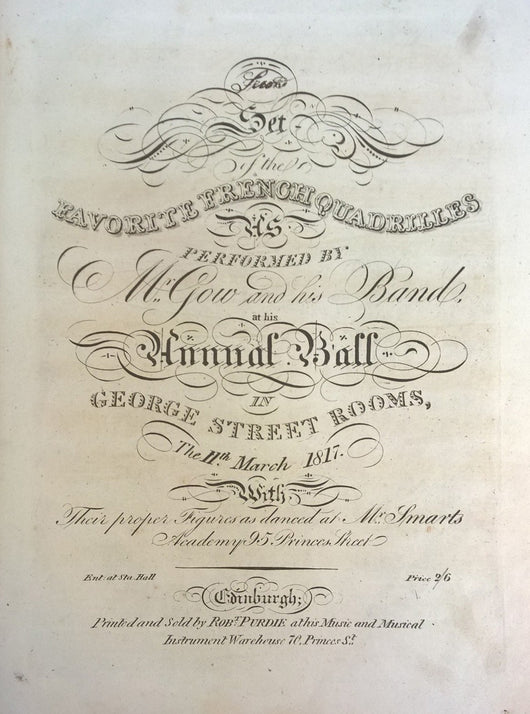 Second
Set
of the
FAVORITE FRENCH QUADRILLES
AS
PERFORMED BY
Mr. Gow and his Band,
at his
Annual Ball
IN
GEORGE STREET ROOMS,
The 11th. March 1817.
With
Their proper Figures as danced at Mr. Smarts
Academy 95 Princes Street
Ent: at Sta. Hall
Price 2/6
Edinburgh;
Printed and Sold by ROBT. PURDIE at his Music and Musical
Instrument Warehouse 70, Princes St.